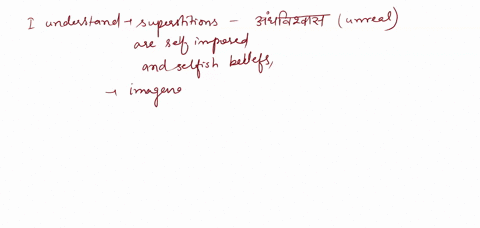 I understand → superstitions - अंधविश्वास (unreal)
are self imposed
and selfish beliefs,
→ imagene